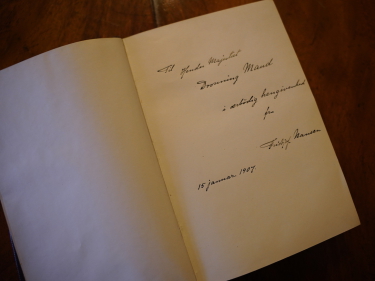 Til Hendes Majestæt
Dronning Maud
i ærbødig hengivenhed
fra
Fridtjof Nansen
15 januar 1907.